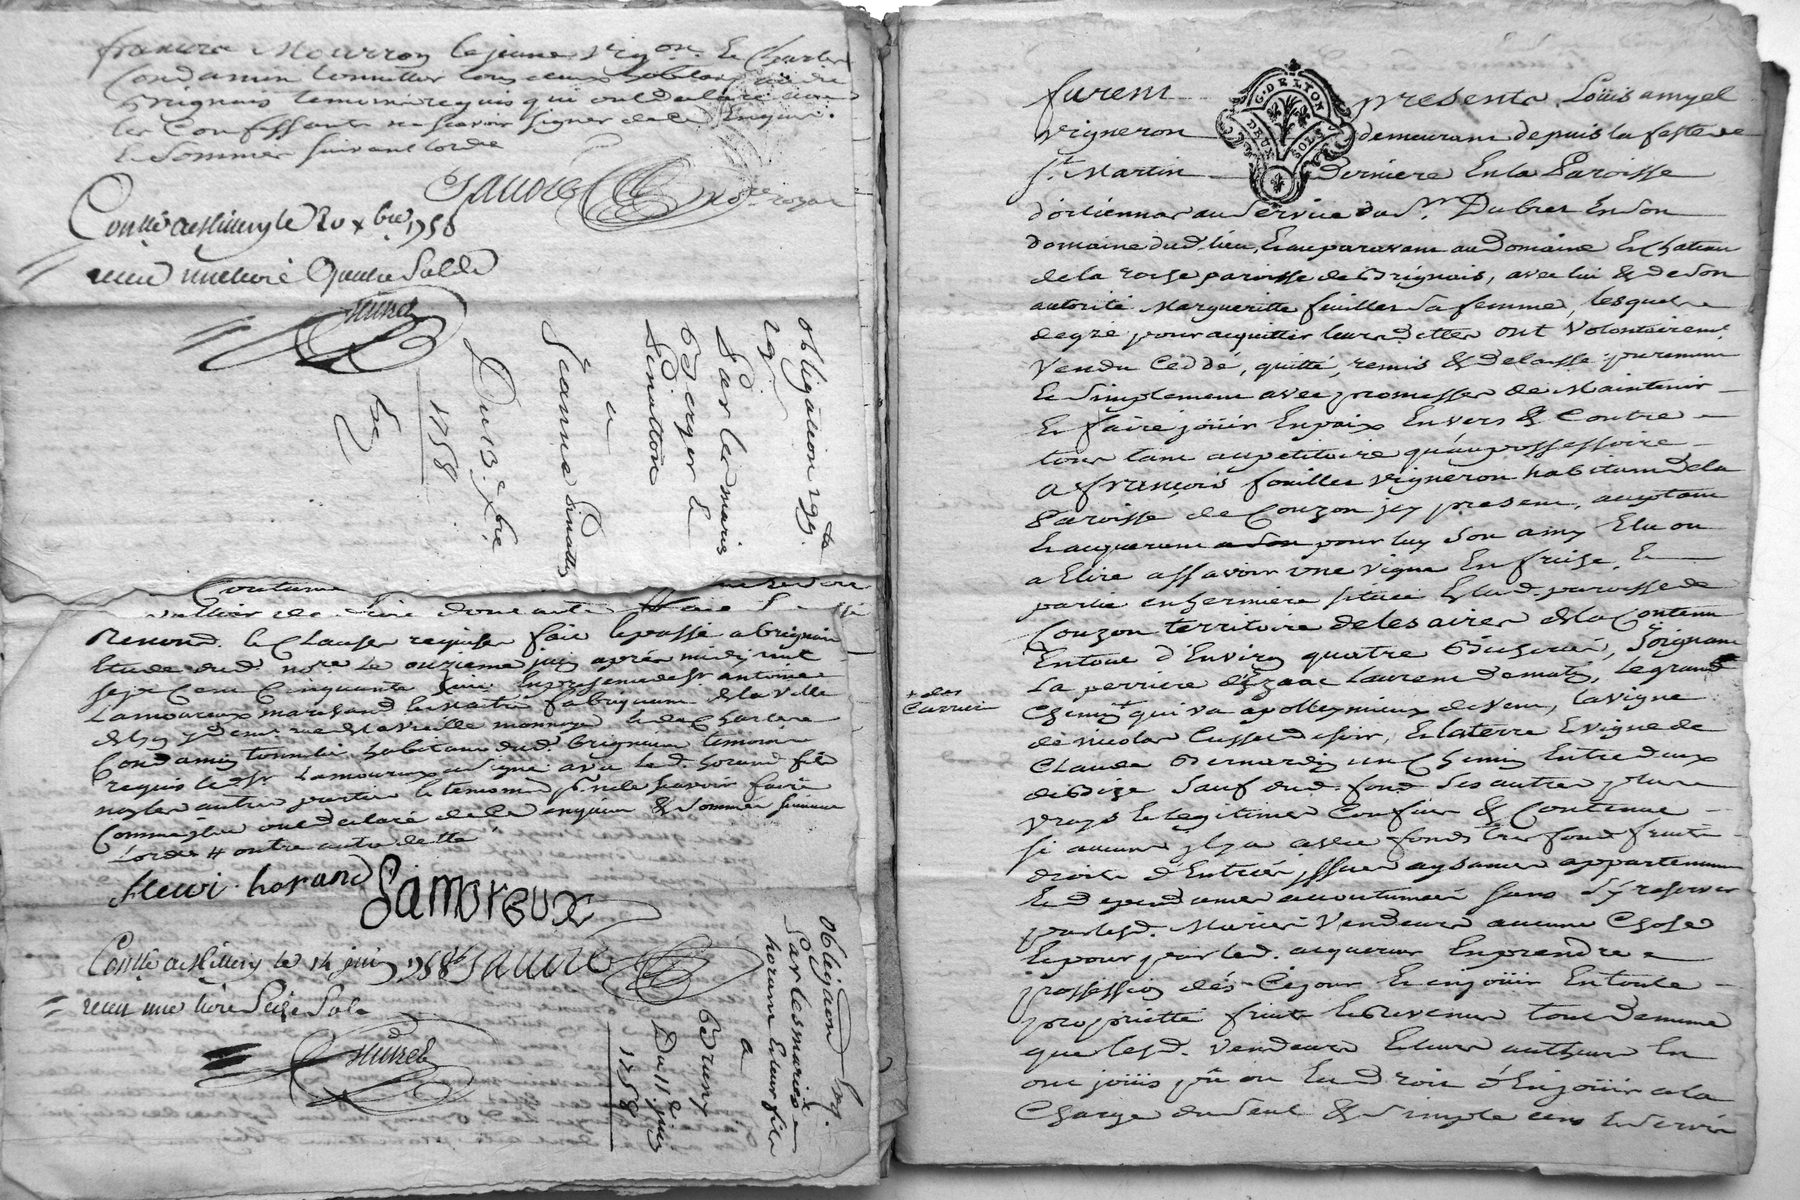 françois Mourron le jeune vigon. & Charles
Condamin tonnellier tous deux habitans dud.
Brignais temoins requis qui ont declaré avec
les Confessants ne scavoir signer de ce Enquis.
& Sommés suivant lordce
Not.re royal
Conllé a Millery le 20 xbre 1758
recu une livre Quatre Solds
obligation 195.ta
Par les mariés
Berger &
Pinatton
a
Jeanne Pinatton
Du 13. xbre
1758
Coutume
Renond. & Clauses requises fait & passé a Brignais
Etude dud. no.re le onzieme juin après midy mil
sept Cent Cinquante huit En presence de Sr antoine
Lamoureux marchand & maitre fabriquant de la Ville
de Lyon y demt. rue de la vieille monnoye & de Charles
Condamin tonnelier habitant dud. Brignais temoins
requis led. Sr. Lamoureux a signé avec led. horand fils
non les autres parties & temoins pr. ne le scavoir faire
Comme ils ont declaré de ce enquis & Sommés suivant
Lordce # autre dette
fleuri. horand Lamoreux
Conllé a Millery le 14 juin 1758
recu une livre Seize Sols
obligaon
Par les mariés
horand & leur fils
a
Bruny
Du 11e. juin
1758
furent presents Loüis amyel
G. DE LYON
DEUX SOLS
vigneron demeurant depuis la feste de
St. Martin derniere En la Paroisse
d'orliennas au Service du Sr. Dubret En Son
domaine dud. lieu, & auparavant au Domaine & Chateau
de la roche paroisse de Brignais, avec lui & de Son
autorité Margueritte fouilles Sa femme, lesquels
de gré pour acquitter leurs dettes ont Volontairemt
Vendu Ceddé, quitté, remis & delaissé purement
& Simplement avec promesses de Maintenir
& faire joüir En paix Envers & Contre
tous tant au petitoire qu'au possessoire
a françois fouilles vigneron habitant de la
Paroisse de Couzon icy present, acceptant
& acquerant pour luy Son amy Elu ou
a Elire assavoir une vigne En fraise, &
partie en hermiere située Esdt. paroisse de
Couzon territoire de les aires de la Contenue
En tout d'Environ quatre Bicherées, Joignant
+ des
Carrier
La perriere d'Izaac Laurent de matin, le grand
Chemin qui va a poleymieux de vent, la vigne
de nicolas Cusset de soir, & la terre & vigne de
Claude Bernardin un Chemin Entre deux
de Bize Sauf dud. fond Ses autres plus
vrays & legitimes Confins & Contenue
si aucuns il y a avec fonds tres fond fruits
droits d'Entrées issues aysances appartenances
& dependances accoutumées Sans S'y reserver
par lesd. Mariés Vendeurs aucune Chose
& pour par led. acquereur En prendre
possession dés Cejour & en joüir En toute
proprieté fruits & Revenus tout de mme
que lesd. vendeurs & leurs autheurs En
ont joüis pû ou Eu Droit d'En joüir a la
Charge du Seul & Simple Cens & Servis